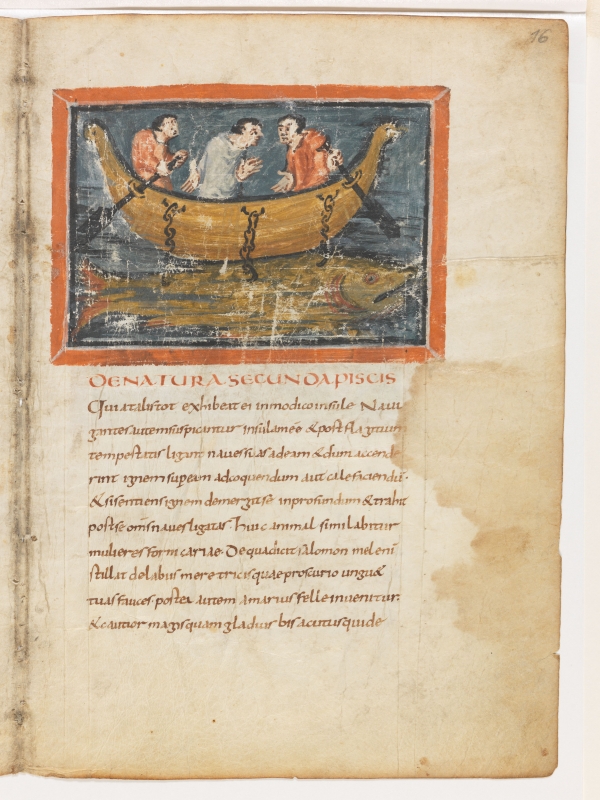 16
DE NATURA SECUNDA PISCIS
Qui talis tot exhibeat ei in modico insule Naui
gantes autem suspicantur insulam eē & post flagitium
tempestatis ligant naues suas ad eam & dum accende
rint ignem super eam ad coquendum aut calefaciendū.
& si sentiens ignem demergit se in profundum & trahit
post se omīs naues ligatas. Huic animal similabitur
mulieres fornicariae. De qua dicit salomon mel enī
stillat de labiis meretricis quae pro scurio ungu&
tuas fauces. postea autem amarius felle inuenitur.
& cautior magis quam gladius bis acutus quide